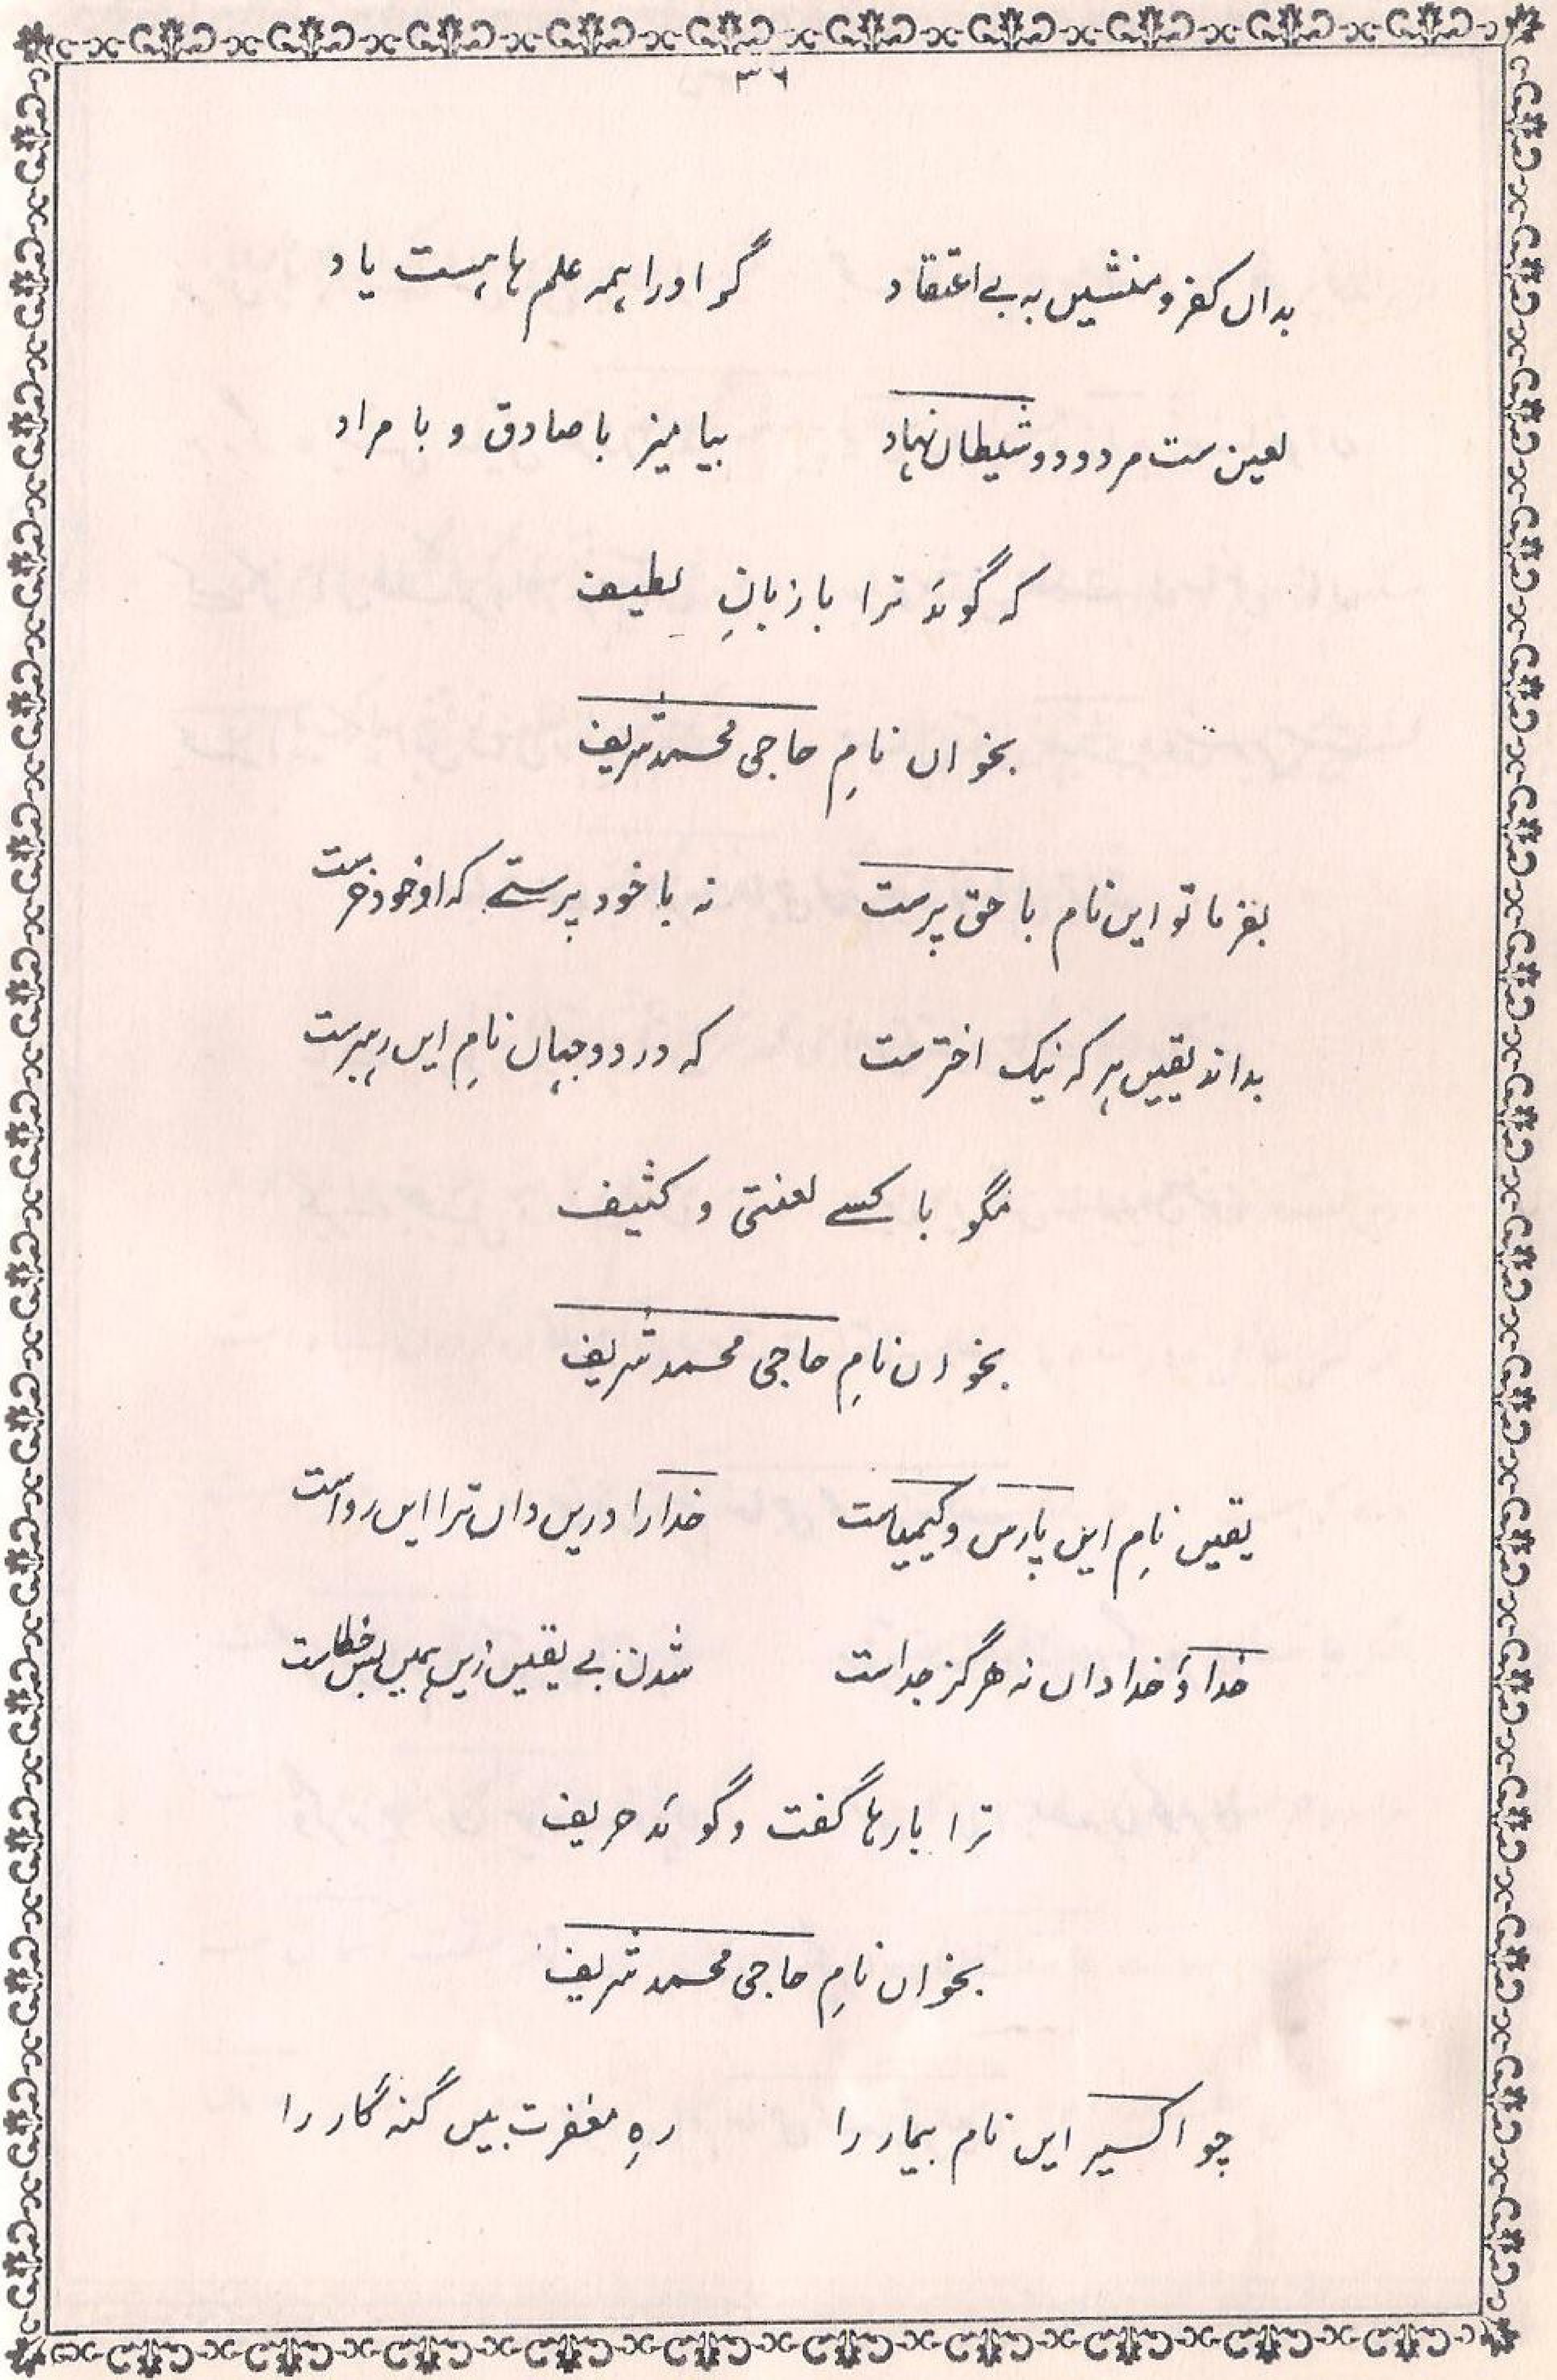 ۳۶
بداں کفر و منشیں بہ بے اعتقاد گر اورا ہمہ علم ہا ہست یاد
لعین ست مردود و شیطاں نہاد بیامیز با صادق و با مراد
کہ گوئد ترا با زبانِ لطیف
بخواں نامِ حاجی محمد شریف
بفرما تو ایں نام با حق پرست نہ با خود پرستے کہ او خود خرست
بداند یقیں ہر کہ نیک اخترست کہ در دو جہاں نامِ ایں رہبرست
مگو با کسے لعنتی و کثیف
بخواں نامِ حاجی محمد شریف
یقیں نامِ ایں پارس و کیمیاست خدا را دریں داں ترا ایں رواست
خدا وَ خدا داں نہ ھرگز جداست شدن بے یقیں زیں ہمیں بس خطاست
ترا بارہا گفت و گوئد حریف
بخواں نامِ حاجی محمد شریف
چو اکسیر ایں نام بیمار را رہِ مغفرت بیں گنہ گار را